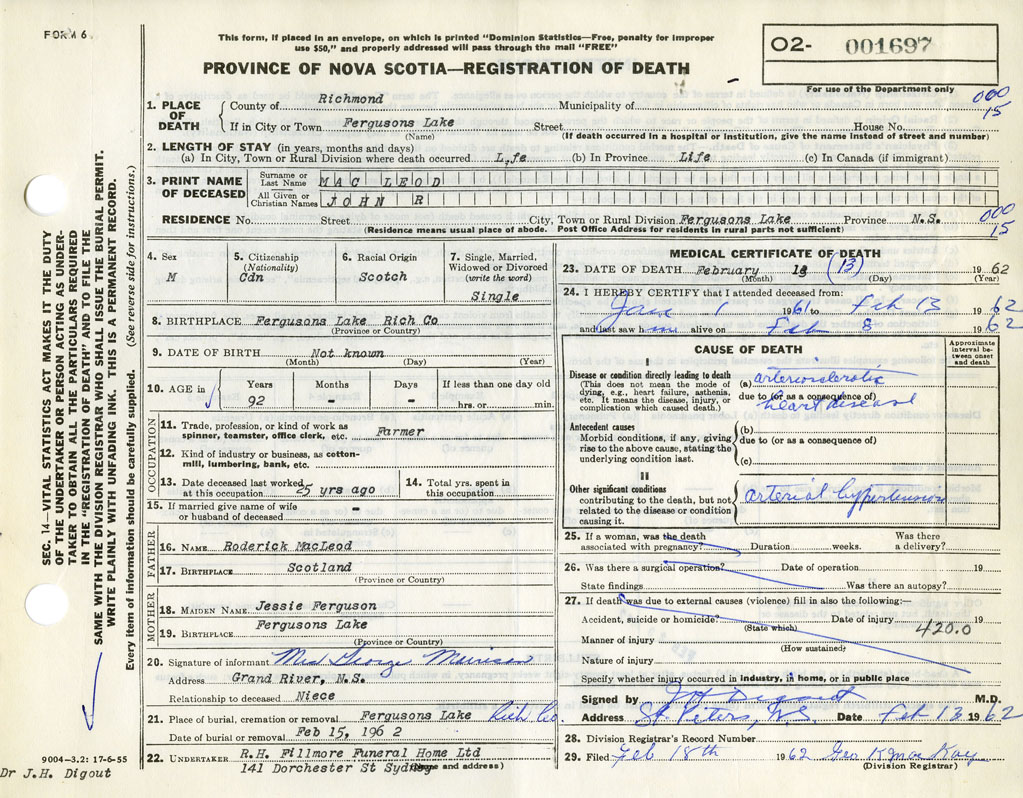 FORM 6
This form, if placed in an envelope, on which is printed "Dominion Statistics—Free, penalty for improper
use $50," and properly addressed will pass through the mail "FREE"
PROVINCE OF NOVA SCOTIA—REGISTRATION OF DEATH
O2- 001697
For use of the Department only
000
15
1. PLACE OF DEATH
County of Richmond Municipality of
If in City or Town Fergusons Lake Street House No.
(Name) (If death occurred in a hospital or institution, give the name instead of street and number)
2. LENGTH OF STAY (in years, months and days)
(a) In City, Town or Rural Division where death occurred Life (b) In Province Life (c) In Canada (if immigrant)
3. PRINT NAME OF DECEASED
Surname or Last Name MAC LEOD
All Given or Christian Names JOHN R
RESIDENCE No. Street City, Town or Rural Division Fergusons Lake Province N.S.
000
15
(Residence means usual place of abode. Post Office Address for residents in rural parts not sufficient)
4. Sex
M
5. Citizenship
(Nationality)
Cdn
6. Racial Origin
Scotch
7. Single, Married,
Widowed or Divorced
(write the word)
Single
8. BIRTHPLACE Fergusons Lake Rich Co
9. DATE OF BIRTH Not known
(Month) (Day) (Year)
10. AGE in
Years Months Days If less than one day old
92 - - hrs. or min.
OCCUPATION
11. Trade, profession, or kind of work as
spinner, teamster, office clerk, etc. Farmer
12. Kind of industry or business, as cotton-
mill, lumbering, bank, etc.
13. Date deceased last worked
at this occupation 25 yrs ago
14. Total yrs. spent in
this occupation
15. If married give name of wife
or husband of deceased -
FATHER
16. NAME Roderick MacLeod
17. BIRTHPLACE Scotland
(Province or Country)
MOTHER
18. MAIDEN NAME Jessie Ferguson
19. BIRTHPLACE Fergusons Lake
(Province or Country)
20. Signature of informant Mrs George Morrison
Address Grand River, N.S.
Relationship to deceased Niece
21. Place of burial, cremation or removal Fergusons Lake Rich Co.
Date of burial or removal Feb 15, 196 2
22. UNDERTAKER R.H. Fillmore Funeral Home Ltd
141 Dorchester St Sydney
(Name and address)
MEDICAL CERTIFICATE OF DEATH
23. DATE OF DEATH February 13 (13) 1962
(Month) (Day) (Year)
24. I HEREBY CERTIFY that I attended deceased from:
Jan 1 1961 to Feb 13 1962
and last saw him alive on Feb 8 1962
CAUSE OF DEATH
Approximate
interval be-
tween onset
and death
I
Disease or condition directly leading to death
(This does not mean the mode of
dying, e.g., heart failure, asthenia,
etc. It means the disease, injury, or
complication which caused death.)
(a) arteriosclerotic
due to (or as a consequence of)
heart disease
Antecedent causes
Morbid conditions, if any, giving
rise to the above cause, stating the
underlying condition last.
(b)
due to (or as a consequence of)
(c)
II
Other significant conditions
contributing to the death, but not
related to the disease or condition
causing it.
arterial hypertension
25. If a woman, was the death
associated with pregnancy? Duration weeks. Was there
a delivery?
26. Was there a surgical operation? Date of operation 19
State findings Was there an autopsy?
27. If death was due to external causes (violence) fill in also the following:—
Accident, suicide or homicide? Date of injury 19
(State which)
420.0
Manner of injury
(How sustained)
Nature of injury
Specify whether injury occurred in industry, in home, or in public place
Signed by J H Digout M.D.
Address St. Peters, N.S. Date Feb 13 1962
28. Division Registrar's Record Number
29. Filed Feb 18th 1962 Geo K MacKay
(Division Registrar)
SEC. 14—VITAL STATISTICS ACT MAKES IT THE DUTY
OF THE UNDERTAKER OR PERSON ACTING AS UNDER-
TAKER TO OBTAIN ALL THE PARTICULARS REQUIRED
IN THE "REGISTRATION OF DEATH" AND TO FILE THE
SAME WITH THE DIVISION REGISTRAR WHO SHALL ISSUE THE BURIAL PERMIT.
WRITE PLAINLY WITH UNFADING INK. THIS IS A PERMANENT RECORD.
Every item of information should be carefully supplied. (See reverse side for instructions.)
9004-3.2: 17-6-55
Dr J.H. Digout